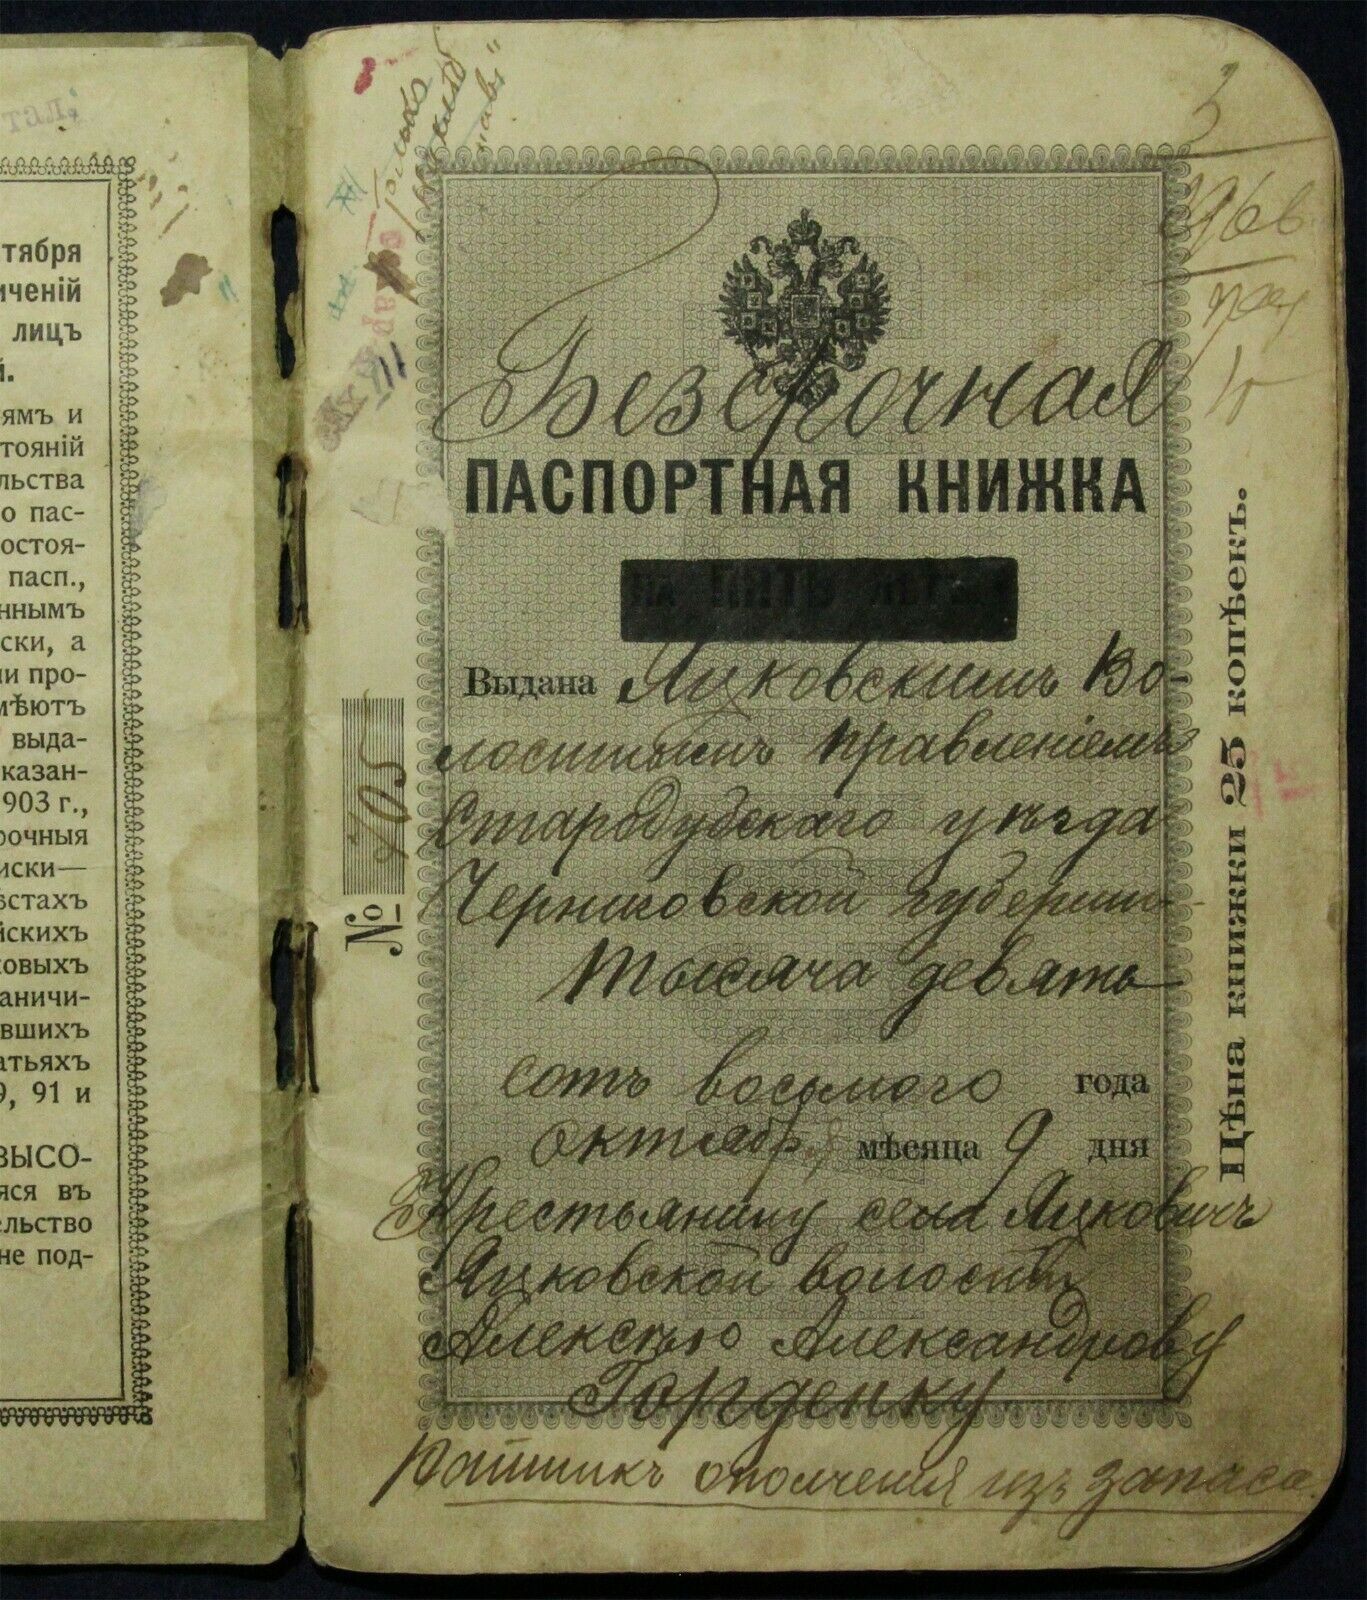 тября
иченій
лицъ
й.
ямъ и
стояній
льства
о пас-
остоя-
пасп.,
ннымъ
ски, а
и про-
мѣютъ
выда-
казан-
903 г.,
рочныя
иски—
ѣстахъ
йскихъ
ковыхъ
аничи-
вшихъ
атьяхъ
9, 91 и
ВЫСО-
яся въ
ельство
не под-
3
Безсрочная
ПАСПОРТНАЯ КНИЖКА
НА ПЯТЬ ЛѢТЪ
Выдана Яцковскимъ Во-
лостнымъ правленіемъ
Стародубскаго уѣзда
Черниговской губерніи
Тысяча девять
сотъ восьмого года
октября мѣсяца 9 дня
Крестьянину села Яцковичъ
Яцковской волости
Алексѣю Александрову
Горденку
Ратникъ ополченія изъ запаса
№ 405
Цѣна книжки 25 копѣекъ.